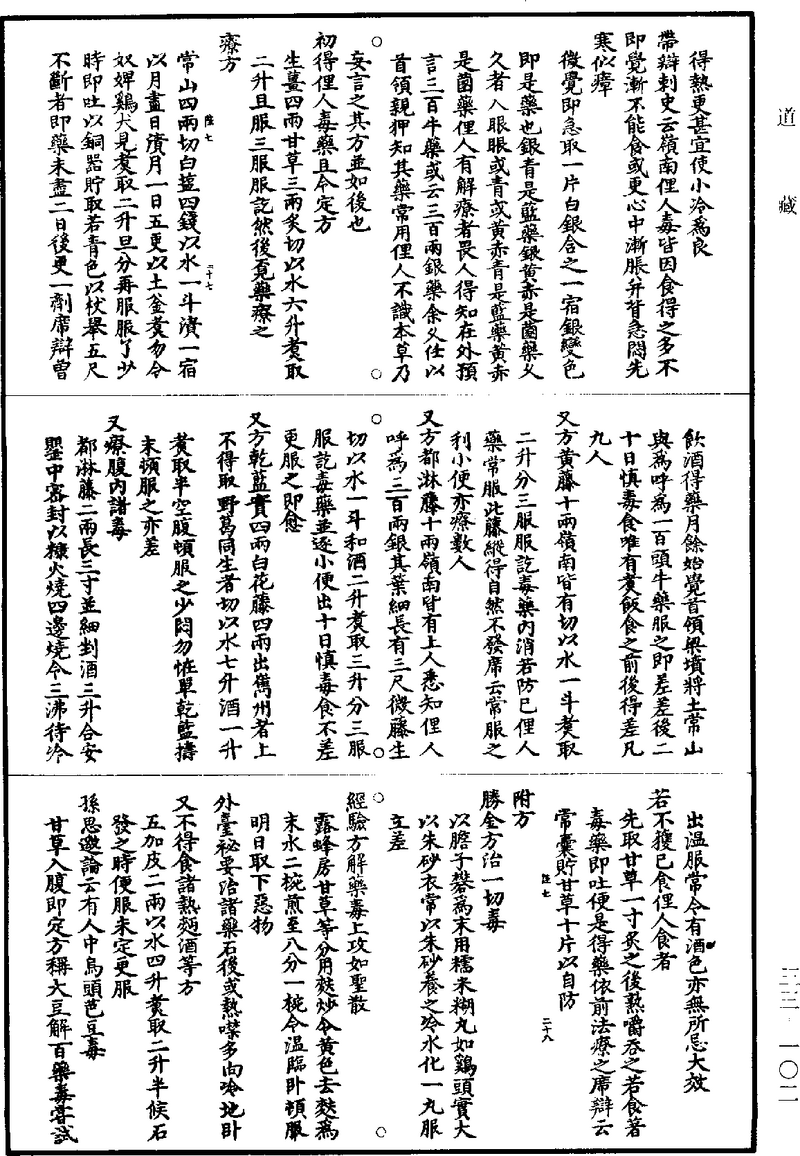 道藏
得熱更甚宜使小冷爲良
帶辯刺史云嶺南俚人毒皆因食得之多不
即覺漸不能食或更心中漸脹并背急悶先
寒似瘴
微覺即急取一片白銀含之一宿銀變色
即是藥也銀青是藍藥銀黄赤是菌藥又
久者入眼眼或青或黄赤青是藍藥黄赤
是菌藥俚人有解療者畏人得知在外預
言三百牛藥或云三百兩銀藥余久任以
首領親狎知其藥常用俚人不識本草乃
妄言之其方並如後也
初得俚人毒藥且令定方
生薑四兩甘草三兩炙切以水六升煮取
二升且服三服服訖然後覓藥療之
療方
常山四兩切白鹽四錢以水一斗漬一宿
以月盡日漬月一日五更以土釜煮勿令
奴婢鷄犬見煮取二升旦分再服服了少
時即吐以銅器貯取若青色以杖舉五尺
不斷者即藥未盡二日後更一劑席辯曾
飲酒得藥月餘始覺首領梁墳將土常山
與爲呼爲一百頭牛藥服之即差差後二
十日慎毒食唯有煮飯食之前後得差凡
九人
又方黄藤十兩嶺南皆有切以水一斗煮取
二升分三服服訖毒藥内消若防已俚人
藥常服此藤縱得自然不發席云常服之
利小便亦療數人
又方都淋藤十兩嶺南皆有土人悉知俚人
呼爲三百兩銀其葉細長有三尺微藤生
切以水一斗和酒二升煮取三升分三服
服訖毒藥並逐小便出十日慎毒食不差
更服之即愈
又方乾藍實四兩白花藤四兩出嶲州者上
不得取野葛同生者切以水七升酒一升
煮取半空腹頓服之少悶勿怪單乾藍擣
末頓服之亦差
又療腹内諸毒
都淋藤二兩長三寸並細剉酒三升合安
甖中密封以糠火燒四邊燒令三沸待冷
出温服常令有酒色亦無所忌大效
若不獲已食俚人食者
先取甘草一寸炙之後熟嚼吞之若食著
毒藥即吐便是得藥依前法療之席辯云
常囊貯甘草十片以自防
附方
勝金方治一切毒
以膽子礬爲末用糯米糊丸如鷄頭實大
以朱砂衣常以朱砂養之冷水化一丸服
立差
經驗方解藥毒上攻如聖散
露蜂房甘草等分用麩炒令黄色去麩爲
末水二椀煎至八分一椀令温臨卧頓服
明日取下惡物
外臺祕要治諸藥石後或熱噤多向冷地卧
又不得食諸熱麪酒等方
五加皮二兩以水四升煮取二升半候石
發之時便服未定更服
孫思邈論云有人中烏頭芭豆毒
甘草入腹即定方稱大豆解百藥毒嘗試
三三·一〇二